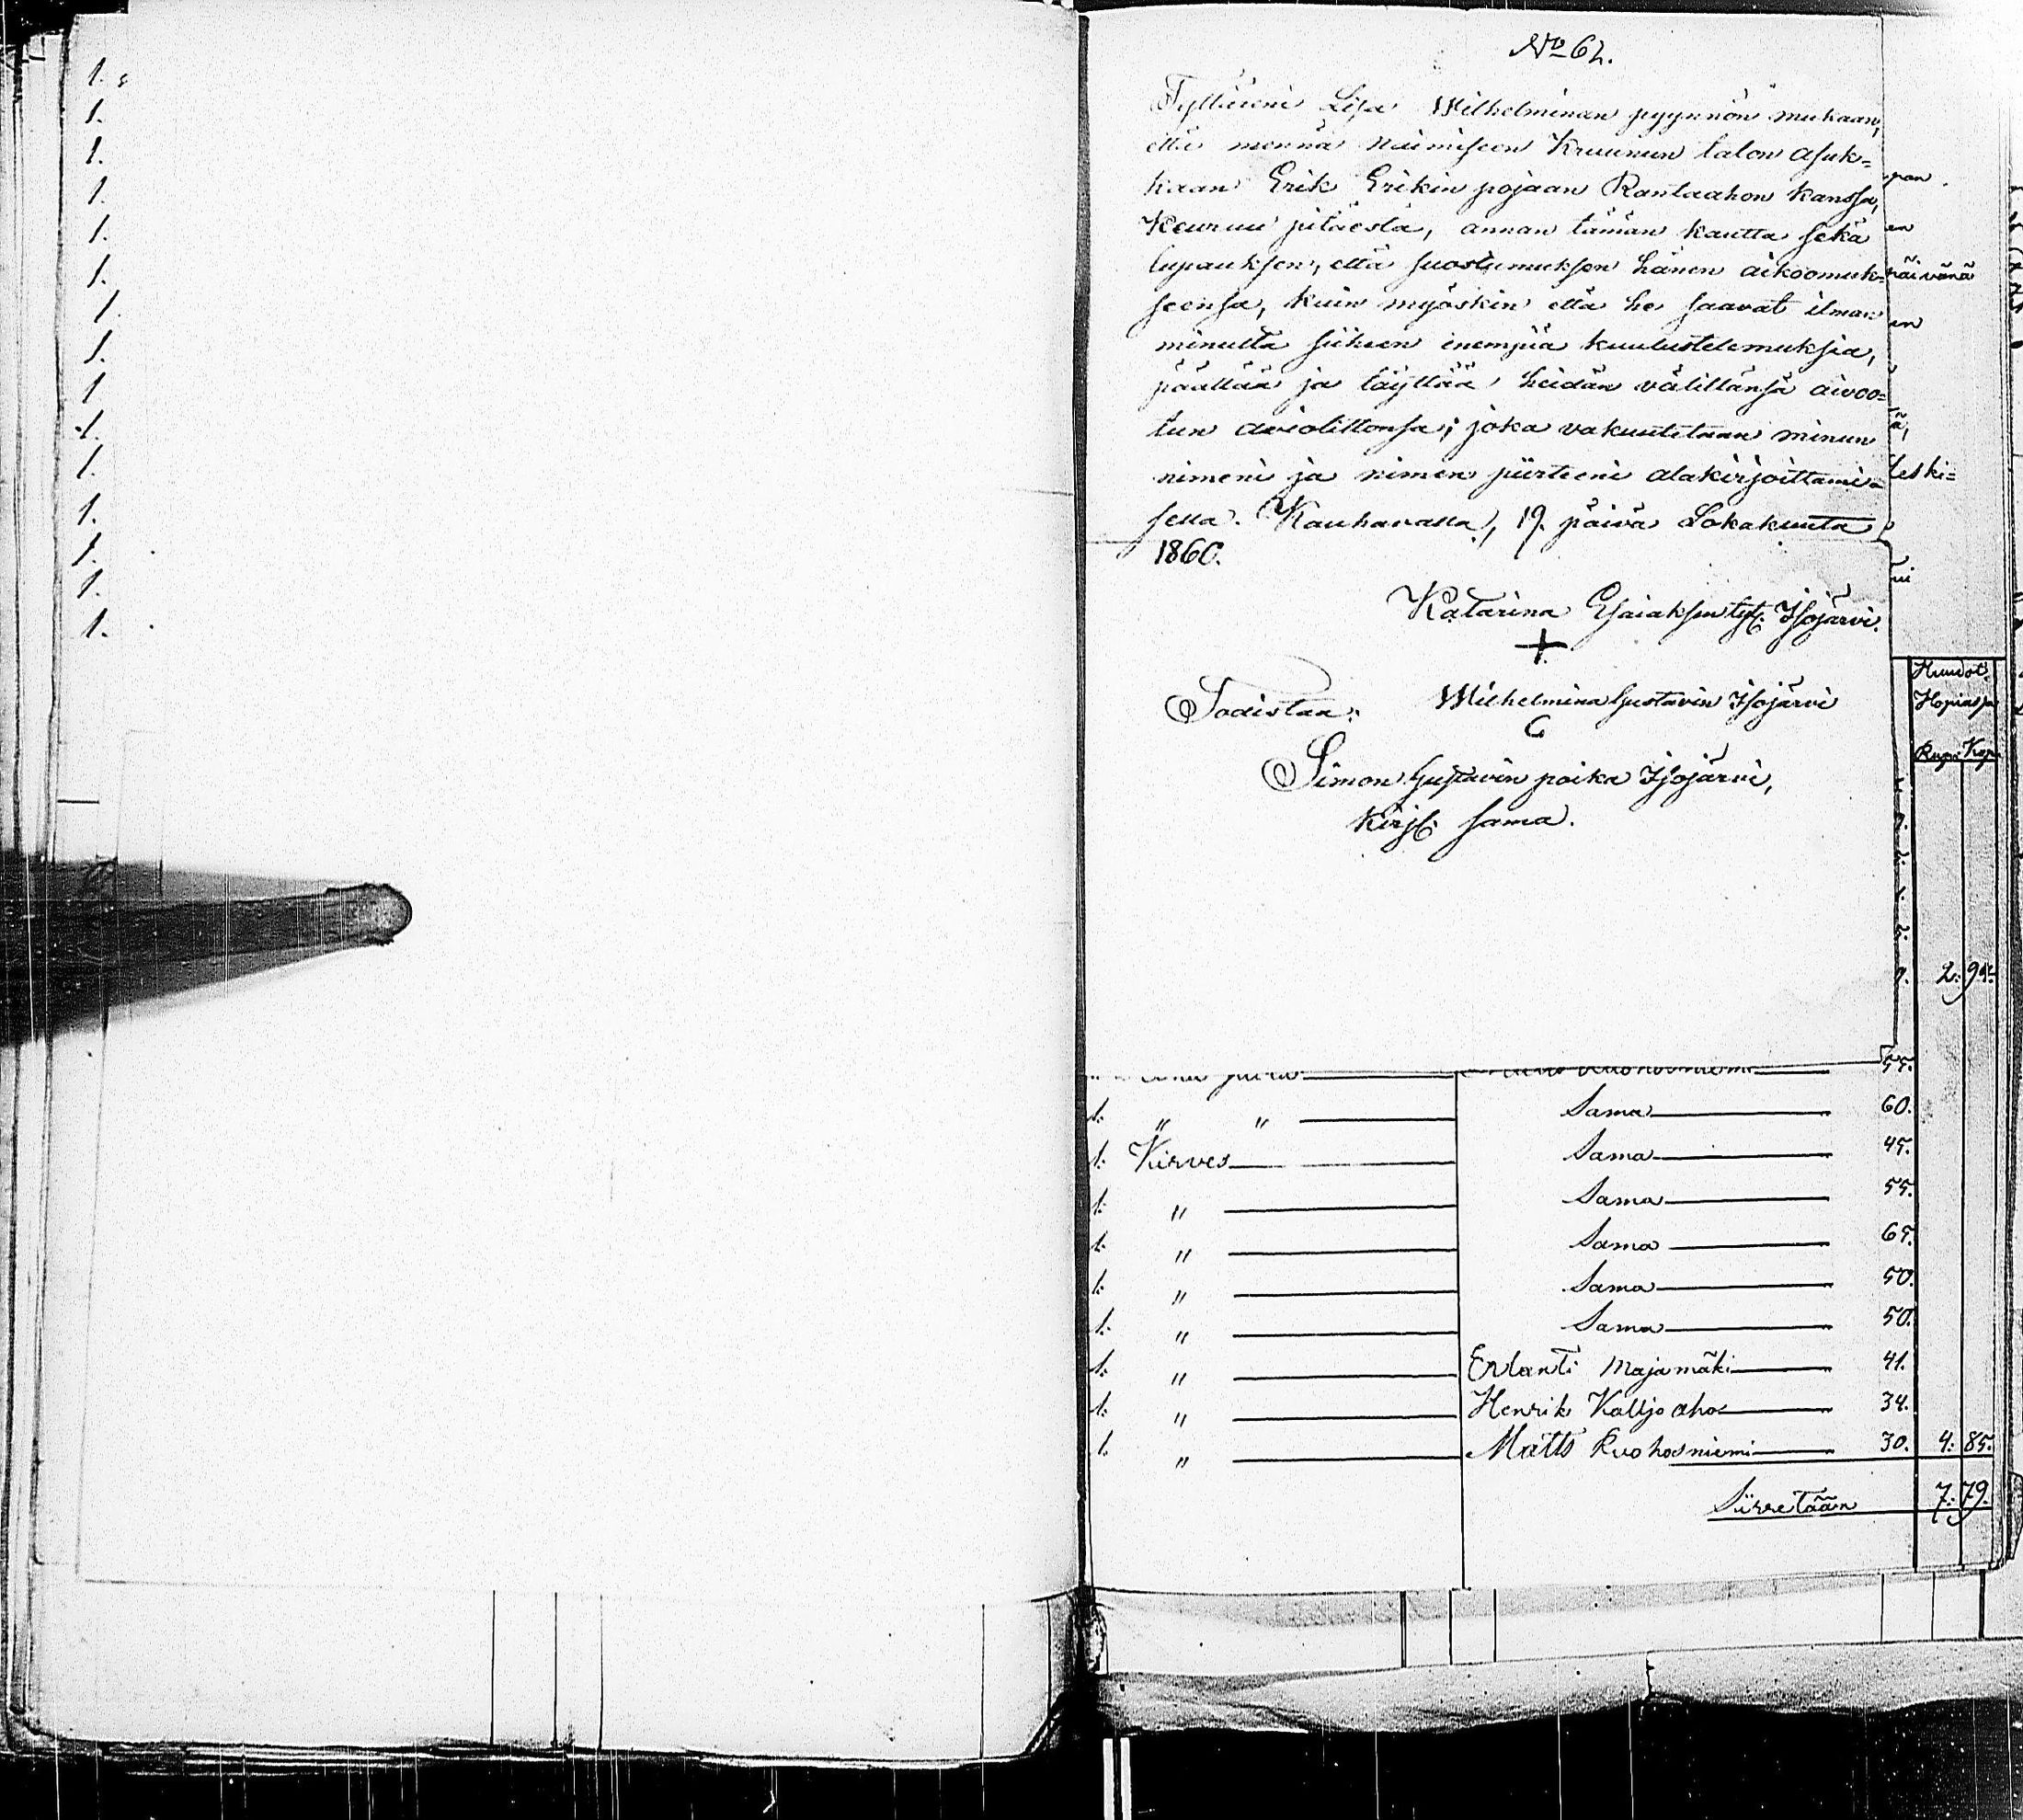 1.
1.
1.
1.
1.
1.
1.
1.
1
1.
1.
1.
1.
1.
1.
No 62.
Tyttäreni Lisa Wilhelminan pyynnön mukaan,
että mennä naimiseen Kruunun talon asuk=
kaan Erik Erikin pojaan Rantaahon kanssa,
Keuruu pitäestä, annan tämän kautta sekä
lupauksen, että suostumuksen hänen aikoomuk=
seensa, kuin myöskin että he saavat ilman
minulta siiheen enempiä kuulustelemuksia,
päättää ja täyttää heidän välillänsä aivoo=
tun aviolittonsa; joka vakuutetaan minun
nimeni ja nimen piirteeni alakirjoittami=
sella. Kauhavalla, 19. päivä Lokakuuta
1860.
Katarina Esaiaksen tyt. Isojärvi.
+
Todistaa: Wilhelmina Gustavin Isojärvi
Simon Gustavin poika Isojärvi,
kirj. sama.
pan
en
päivänä
en
ä,
leski=
Huudot
Hopiassa
Rupi Kop.
2: 94.
55.
1. " " Sama 60.
1. Kirves Sama 45.
1. " Sama 55.
1. " Sama 65.
1. " Sama 50.
1. " Sama 50.
1. " Erlanti Majamäki 41.
1. " Henrik Kalljoaho 34.
1. " Matts Ruohoniemi 30. 4: 85.
Siirretään 7: 79.